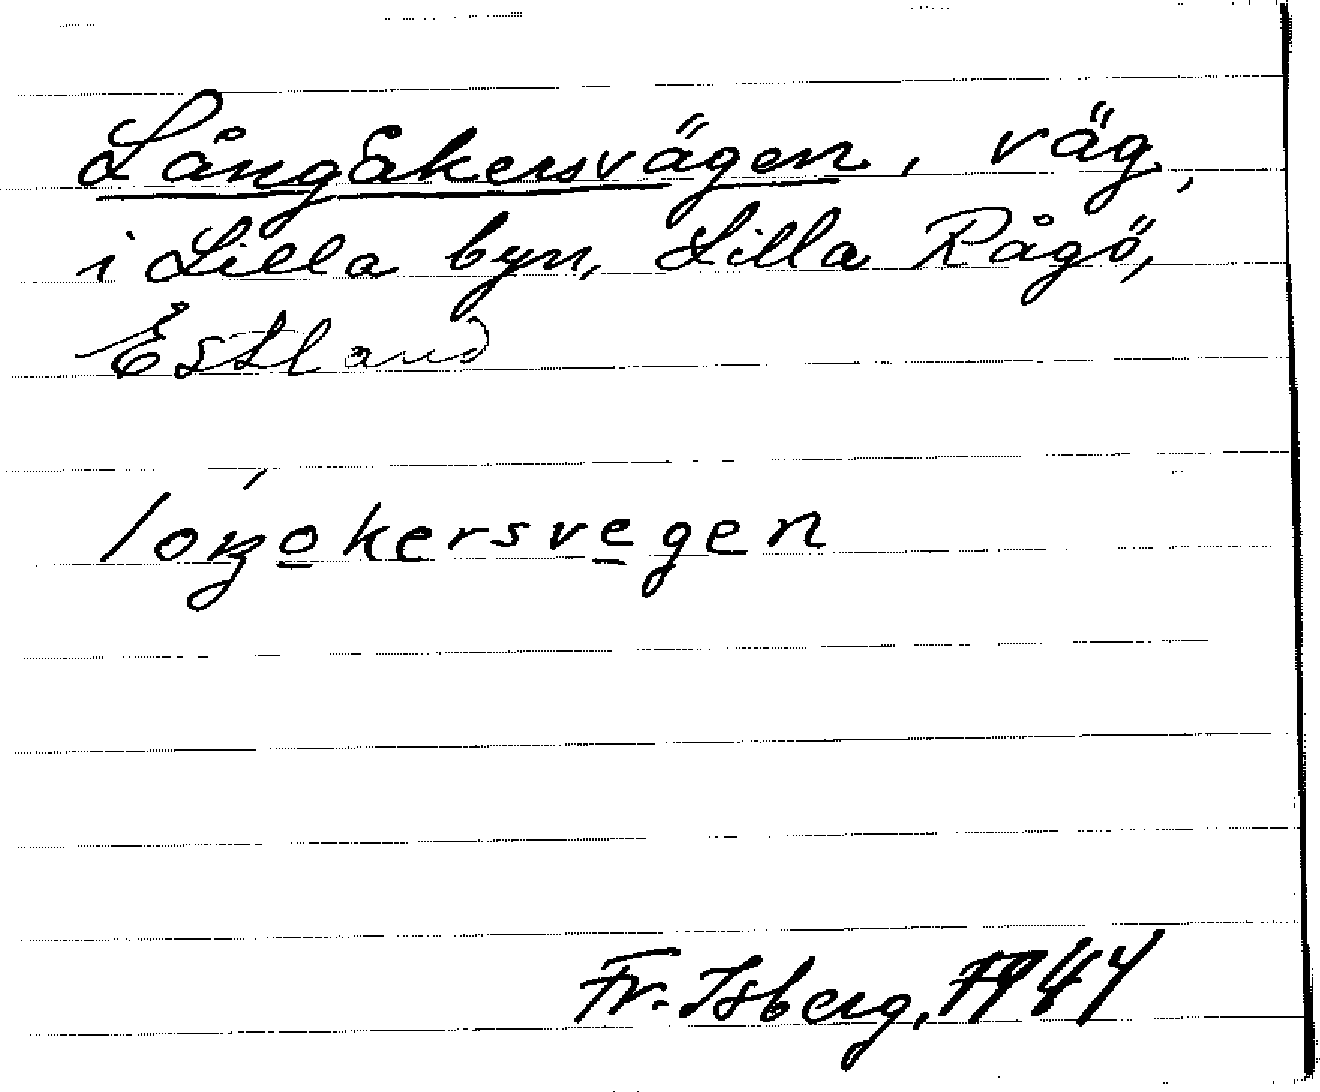 Långåkersvägen, väg,
i Lilla byn, Lilla Rågö,
Estland
loŋo̲kersve̲gen
Fr. Isberg, 1944